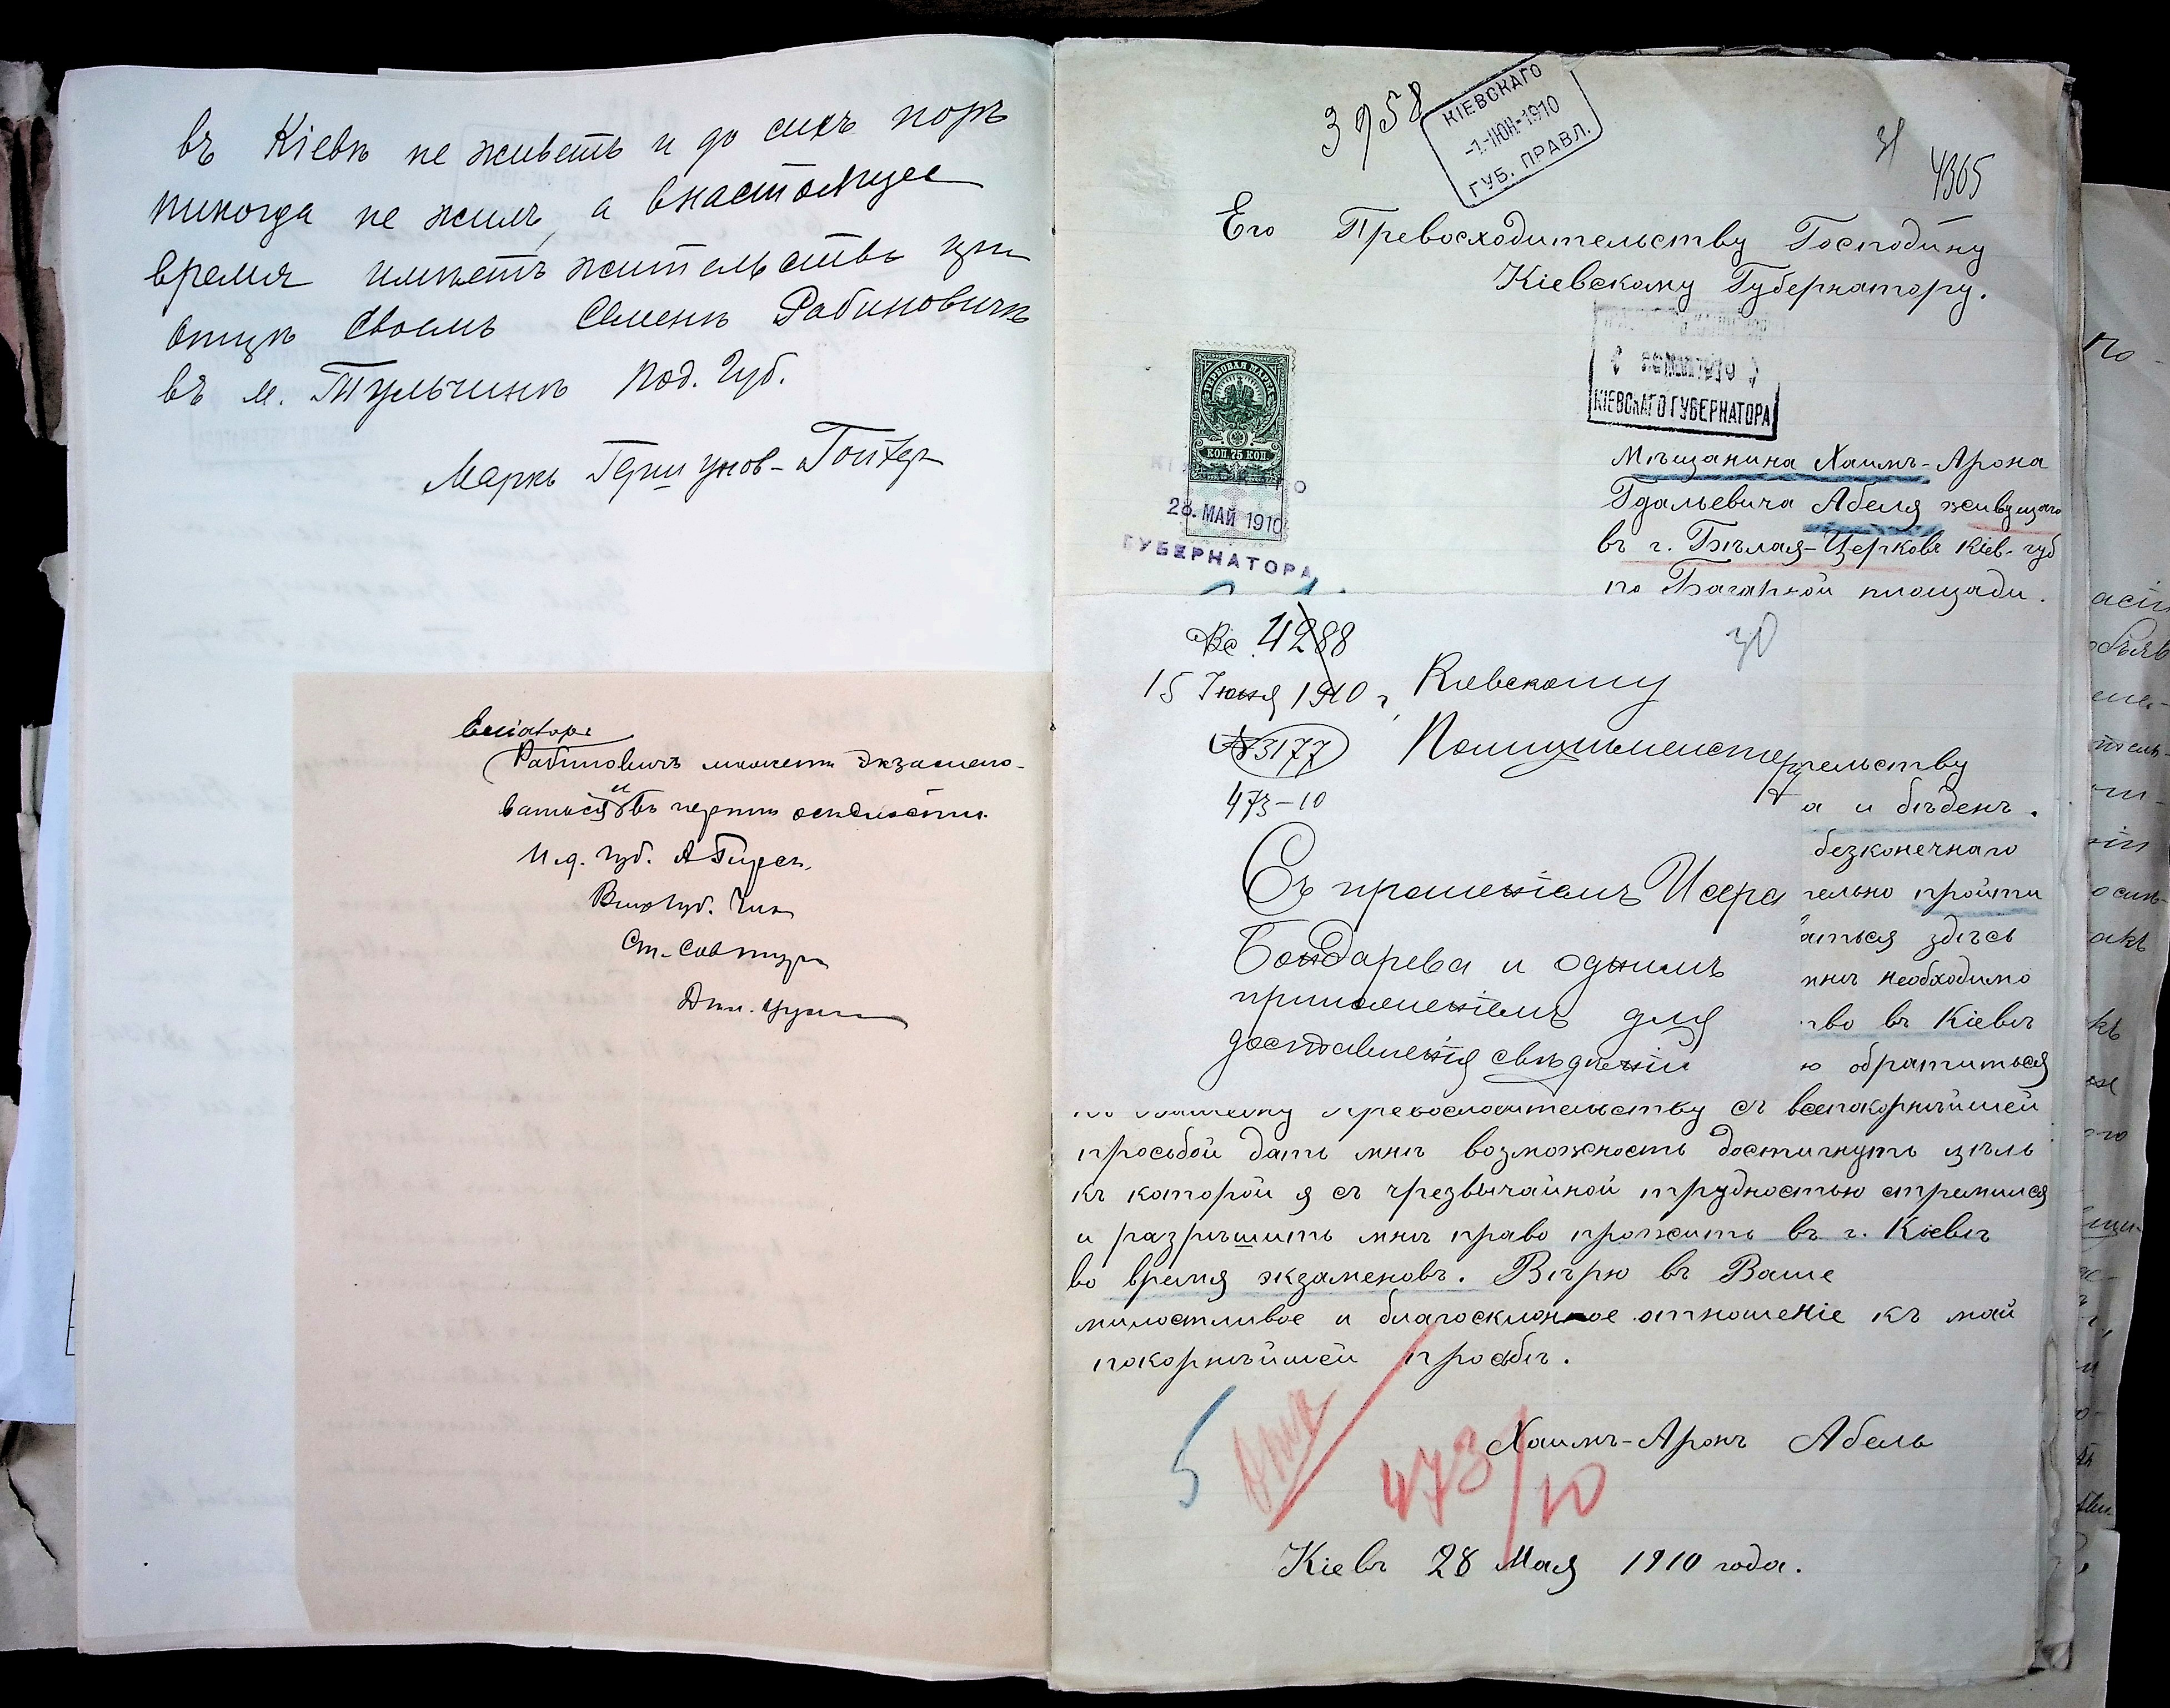 въ Кіевѣ не живетъ и до сихъ поръ
никогда не жилъ, а внастоящее
время имѣетъ жительство при
отцѣ своемъ Семенѣ Рабиновичѣ
въ м. Тульчинѣ Под. Губ.
Маркъ Гершунов-
Рабиновичъ можетъ экзамено-
ваться и въ чертѣ осѣдлости.
И.д. Губ. А
Вице Губ.
Ст. Совѣтн
3958
КІЕВСКАГО
-1.-ІЮН-1910
ГУБ. ПРАВЛ.
31
4365
Его Превосходительству Господину
Кіевскому Губернатору.
КІЕВСКАГО ГУБЕРНАТОРА
ГЕРБОВАЯ МАРКА
КОП. 75 КОП.
28. МАЙ 1910
ГУБЕРНАТОРА
Мѣщанина Хаимъ-Арона
Гдальевича Абеля живущаго
въ г. Бѣлая-Церковь Кіев. губ
по площади.
4288
30
15 Іюня 1910 г.
Кіевскому
№3177
Полицмейстеру
473-10
Съ прошеніемъ
Бондарева и однимъ
приложеніемъ для
доставленія свѣдѣній
рельству
а и бѣденъ.
безконечнаго
тельно пройти
аться здѣсь
мнѣ необходимо
тво въ Кіевѣ
ю обратиться
Превосходительству съ всепокорнѣйшей
просьбой дать мнѣ возможность достигнуть цѣль
къ которой я съ чрезвычайной трудностью стремился
и разрѣшить мнѣ право прожить въ г. Кіевѣ
во время экзаменовъ. Вѣрю въ Ваше
милостливое и благосклонное отношеніе къ моей
покорнѣйшей просьбѣ.
5
473/10
Хаимъ-Аронъ Абель
Кіевъ 28 Мая 1910 года.